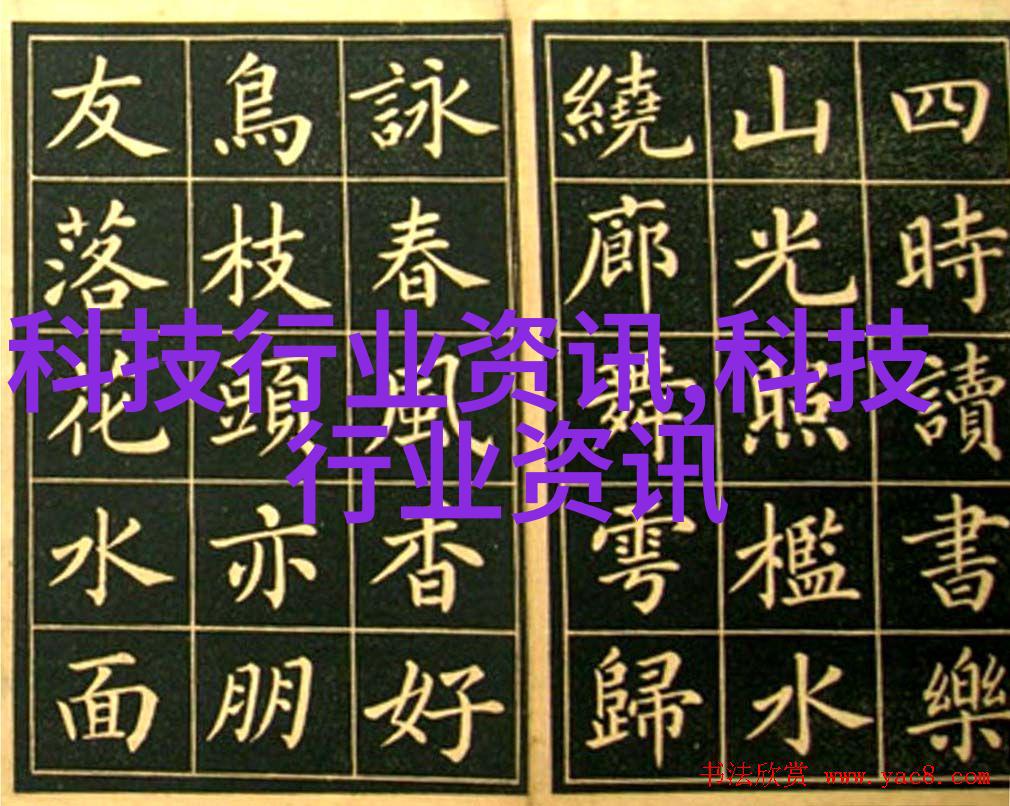 四時讀書樂
山光照檻水
繞廊舞雩歸
詠春風香好
鳥枝頭亦朋
友落花水面
科技行业资讯,科技
行业资讯
书法欣赏 www.yac8.com